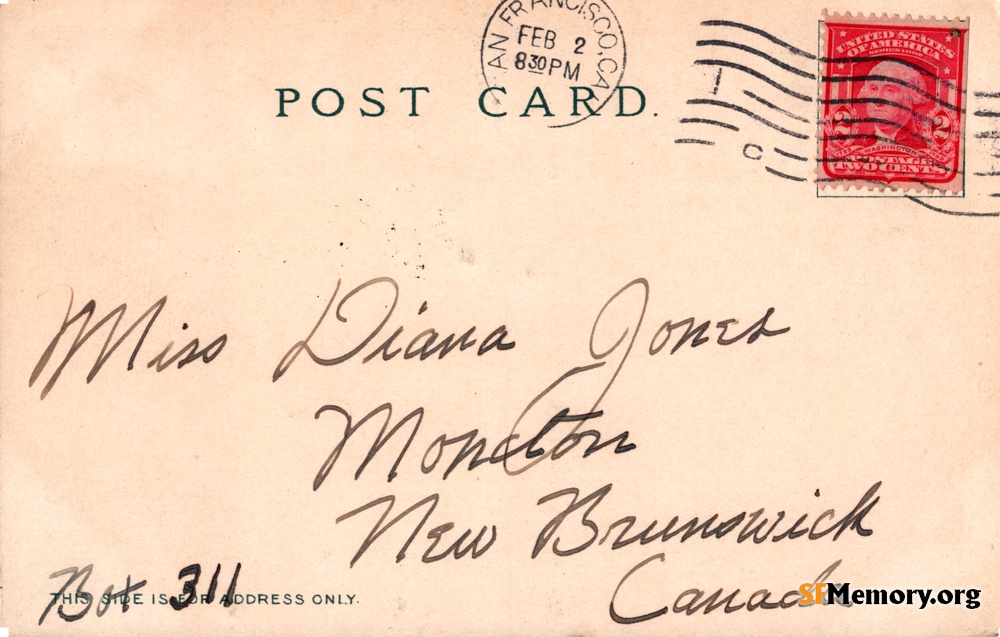 SAN FRANCISCO, CA.
FEB 2
8 30 PM
POST CARD.
UNITED STATES
OF AMERICA
SERIES 1902
2 2
WASHINGTON
POSTAGE
TWO CENTS
C
Miss Diana Jones
Moncton
New Brunswick
Canada
Box 311
THIS SIDE IS FOR ADDRESS ONLY.
SFMemory.org